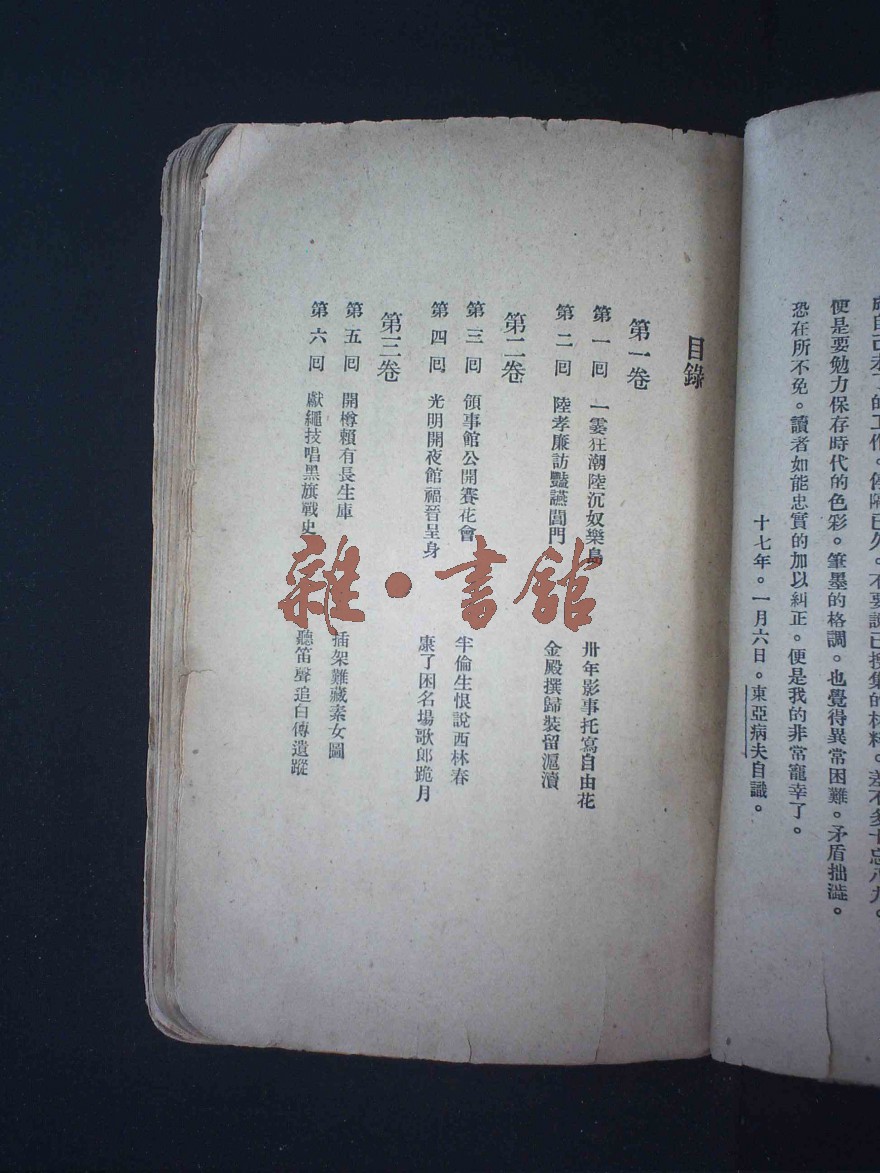 便是要勉力保存時代的色彩。筆墨的格調。也覺得異常困難。矛盾拙澁。
恐在所不免。讀者如能忠實的加以糾正。便是我的非常寵幸了。
十七年。一月六日。東亞病夫自識。
目錄
第一卷
第一回 一霎狂潮陸沉奴樂島 卅年影事托寫自由花
第二回 陸孝廉訪豔讌閶門 金殿撰歸裝留滬瀆
第二卷
第三回 領事館公開賽花會 半倫生恨說西林春
第四回 光明開夜館福晉呈身 康了困名場歌郎跪月
第三卷
第五回 開樽賴有長生庫 插架難藏素女圖
第六回 獻繩技唱黑旗戰史 聽笛聲追白傅遺蹤
雜·書館